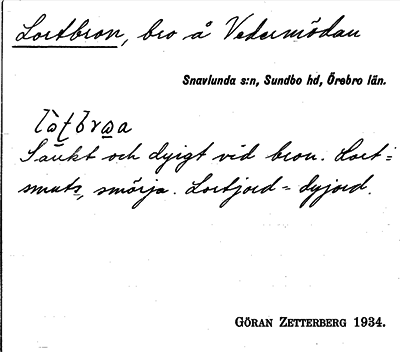 Lortbron, bro å Vedermödan
Snavlunda s:n, Sundbo hd, Örebro län.
Sankt och dyigt vid bron. Lort =
smuts, smörja. Lortjord = dyjord.
GÖRAN ZETTERBERG 1934.